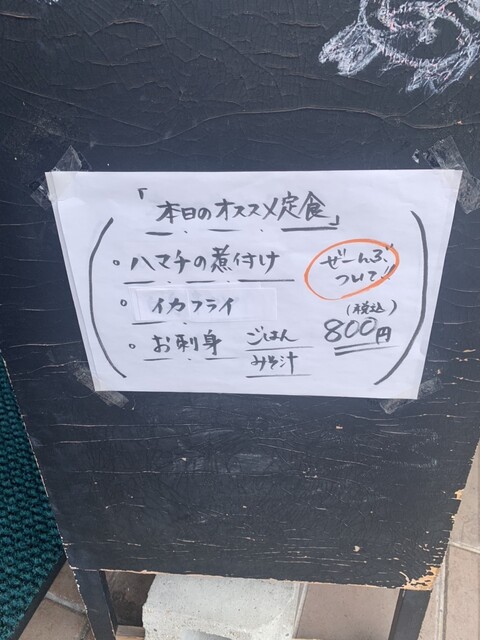 「本日のオススメ定食」
・ハマチの煮付け
・イカフライ
・お刺身
ごはん
みそ汁
ぜーんぶ
ついて!!
(税込)
800円